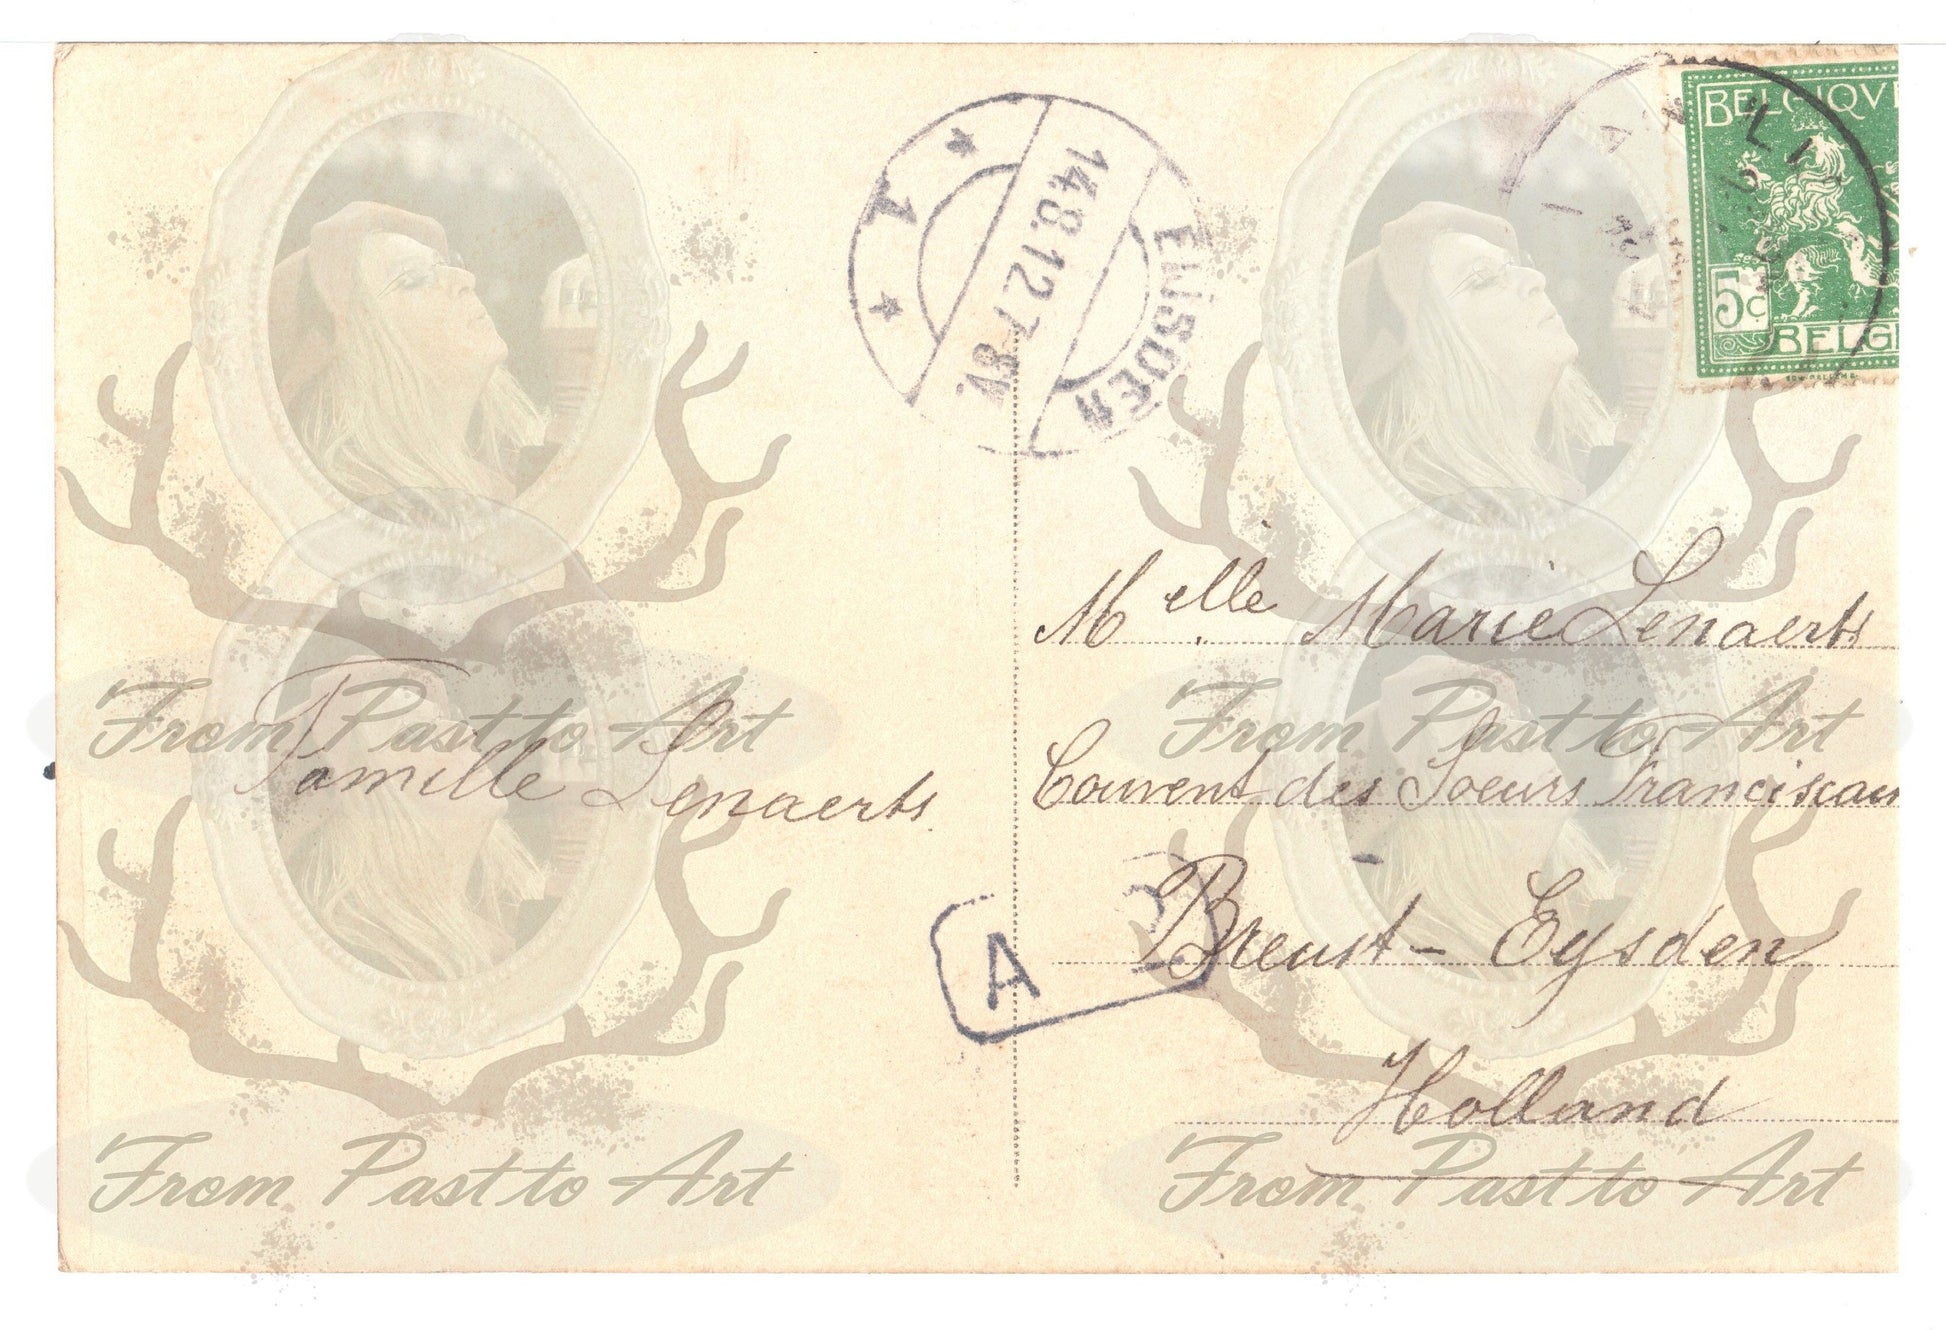 1
14.8.12.7-8V.
EIJSDEN
BELGIQUE
5c
BELG
Melle Marie Lenaerts
Famille Lenaerts
Couvent des Soeurs Franciscain
A
Breust - Eysden
Holland
From Past to Art
From Past to Art
From Past to Art
From Past to Art